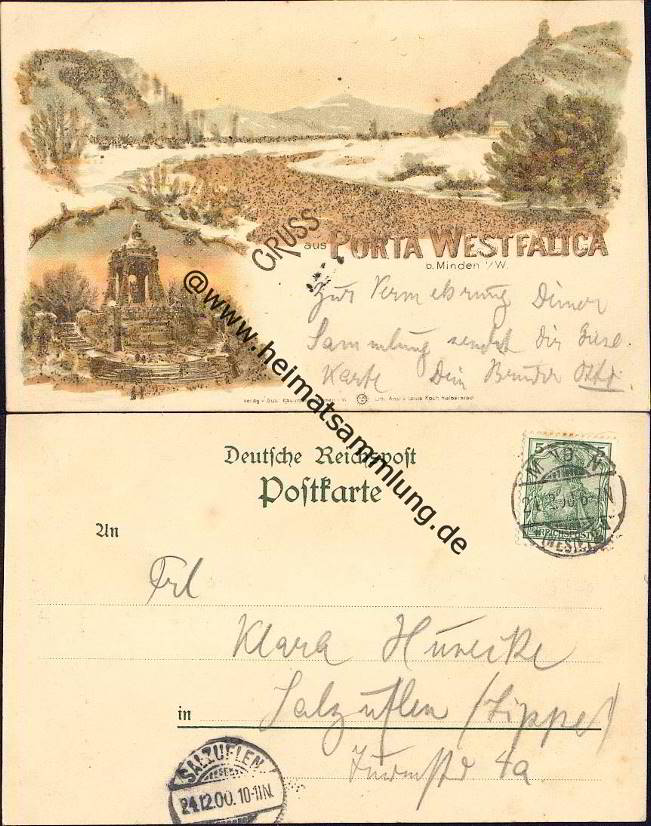 GRUSS
aus PORTA WESTFALICA
b. Minden i/W.
Zur Vermehrung Deiner
Sammlung sendet dir diese
Karte Dein Bruder Otto.
Lith. Anst. v. Louis Koch Halberstadt
@www.heimatsammlung.de
Deutsche Reichspost
Postkarte
5 5
REICHSPOST
MINDEN
(WESTF.)
An
Frl
Klara
in Salzuflen (Lippe)
Turmstr 4a
SALZUFLEN
24.12.00. 10-11N.